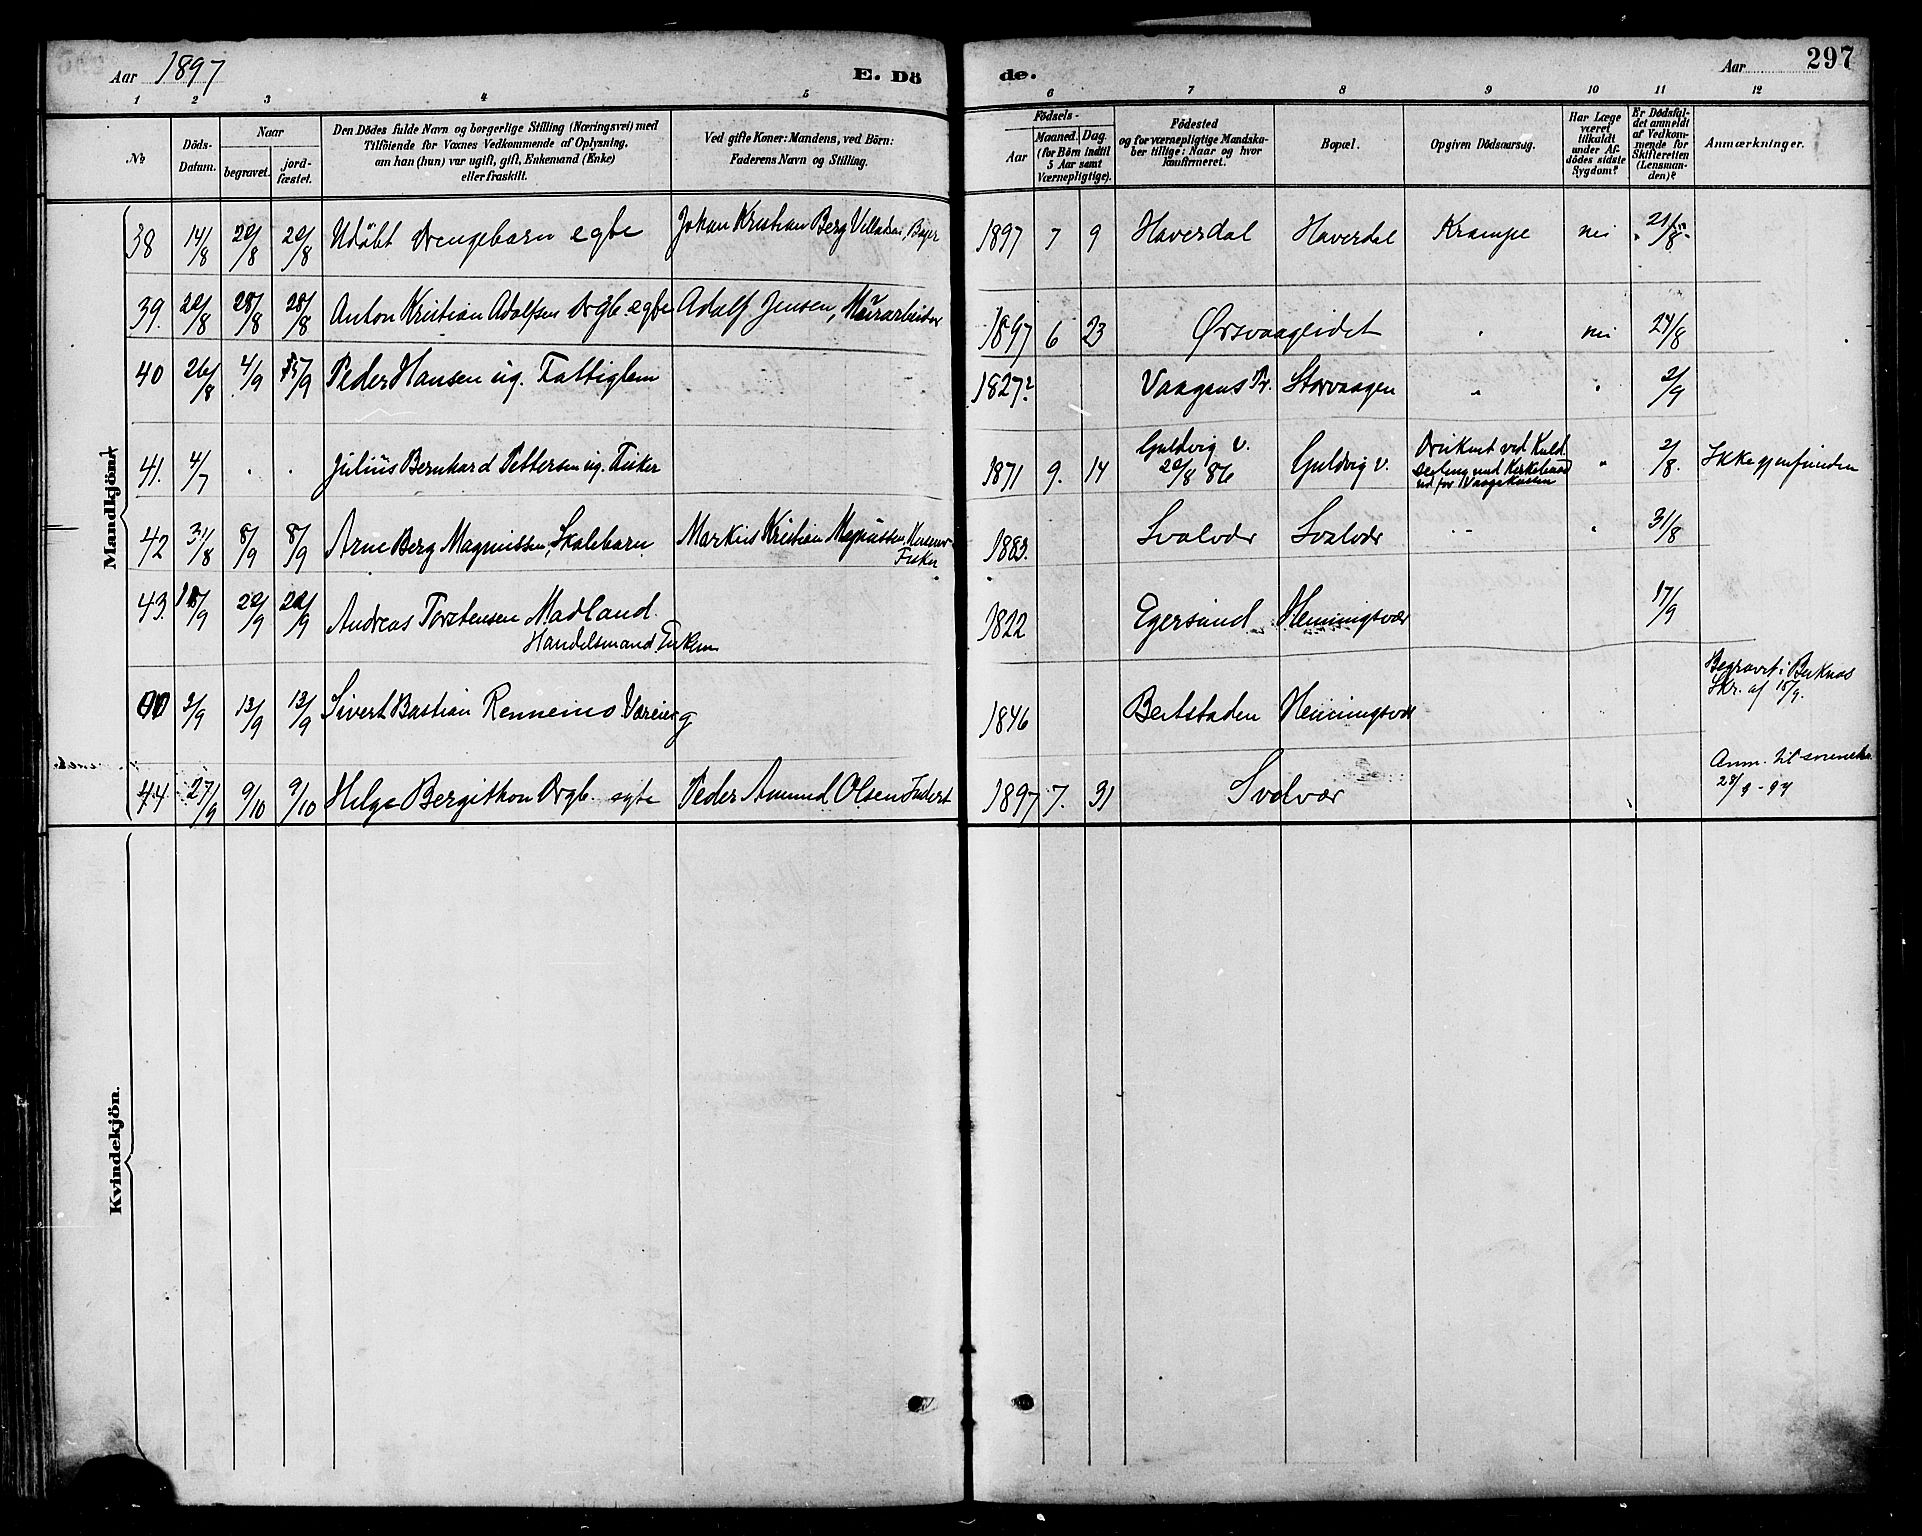 Aar 1897 E. Dö
de. Aar 297
1 2 3 4 5
6 7 8 9 10 11 12
№
Döds-Datum.
Naar
begravet.
jord-fæstet.
Den Dödes fulde Navn og borgerlige Stilling (Næringsvei) med
Tilföiende for Voxnes Vedkommende af Oplysning,
om han (hun) var ugift, gift, Enkemand (Enke)
eller fraskilt.
Ved gifte Koner: Mandens, ved Börn:
Faderens Navn og Stilling.
Födsels-
Aar
Maaned. Dag.
(for Börn indtil
5 Aar samt
Værnepligtige).
Födested
og for værnepligtige Mandska-
ber tillige: Naar og hvor
konfirmeret.
Bopæl.
Opgiven Dödsaarsag.
Har Læge
været
tilkaldt
under Af-
dödes sidste
Sygdom?
Er Dödsfal-
det anmeldt
af Vedkom-
mende for
Skifteretten
(Lensman-
den)?
Anmærkninger.
Mandkjön.
38 14/8 20/8 20/8 Udöbt Drengebarn egte Johan Kristian Berg 1897 7 9 Haverdal Haverdal Krampe nei 21/8
39. 20/8 28/8 28/8 Anton Kristian Adolfsen Drgb. egte Adolf Jensen, Murarbeider 1897 6 23 Ørsvaageidet nei 24/8
40 26/8 4/9 /9 Peder Hansen ug. Fattiglem 1827? Vaagens Pr. Storvaagen " 2/9
41. 4/7 . . Julius Bernhard Pettersen ug. Fisker 1871 9. 14 Guldvig v. Guldvig v. Druknet ved Kuld- 2/8. Ikke gjenfunden
20/8 86 seiling
ud for
42 31/8 8/9 8/9 Arne Berg Magnussen, Skolebarn Markus Kristian Magnussen, 1883. Svolvær Svolvær 31/8
Fisker
43. /9 20/9 20/9 Andreas Torstensen Madland. 1822 Egersund Henningsvær 17/9
Handelsmand. Enkem
3/9 13/9 13/9 Sivert Bastian Rennemo Væreier g 1846 Beitstaden Henningsvær Begravet i
Skr. af 15/9.
44 27/9 9/10 9/10 Helge Bergithon Drgb. egte Peder Amund Olsen 1897 7. 31 Svolvær Anm. til
28/9-97
Kvindekjön.